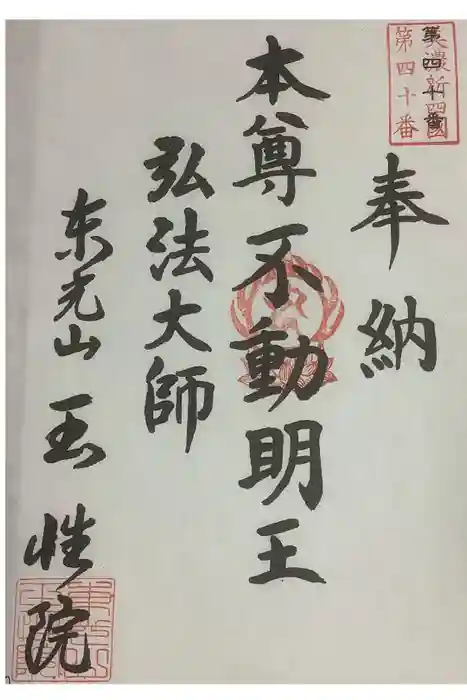 美濃新四國
第四十番
奉納
本尊不動明王
弘法大師
东光山玉性院